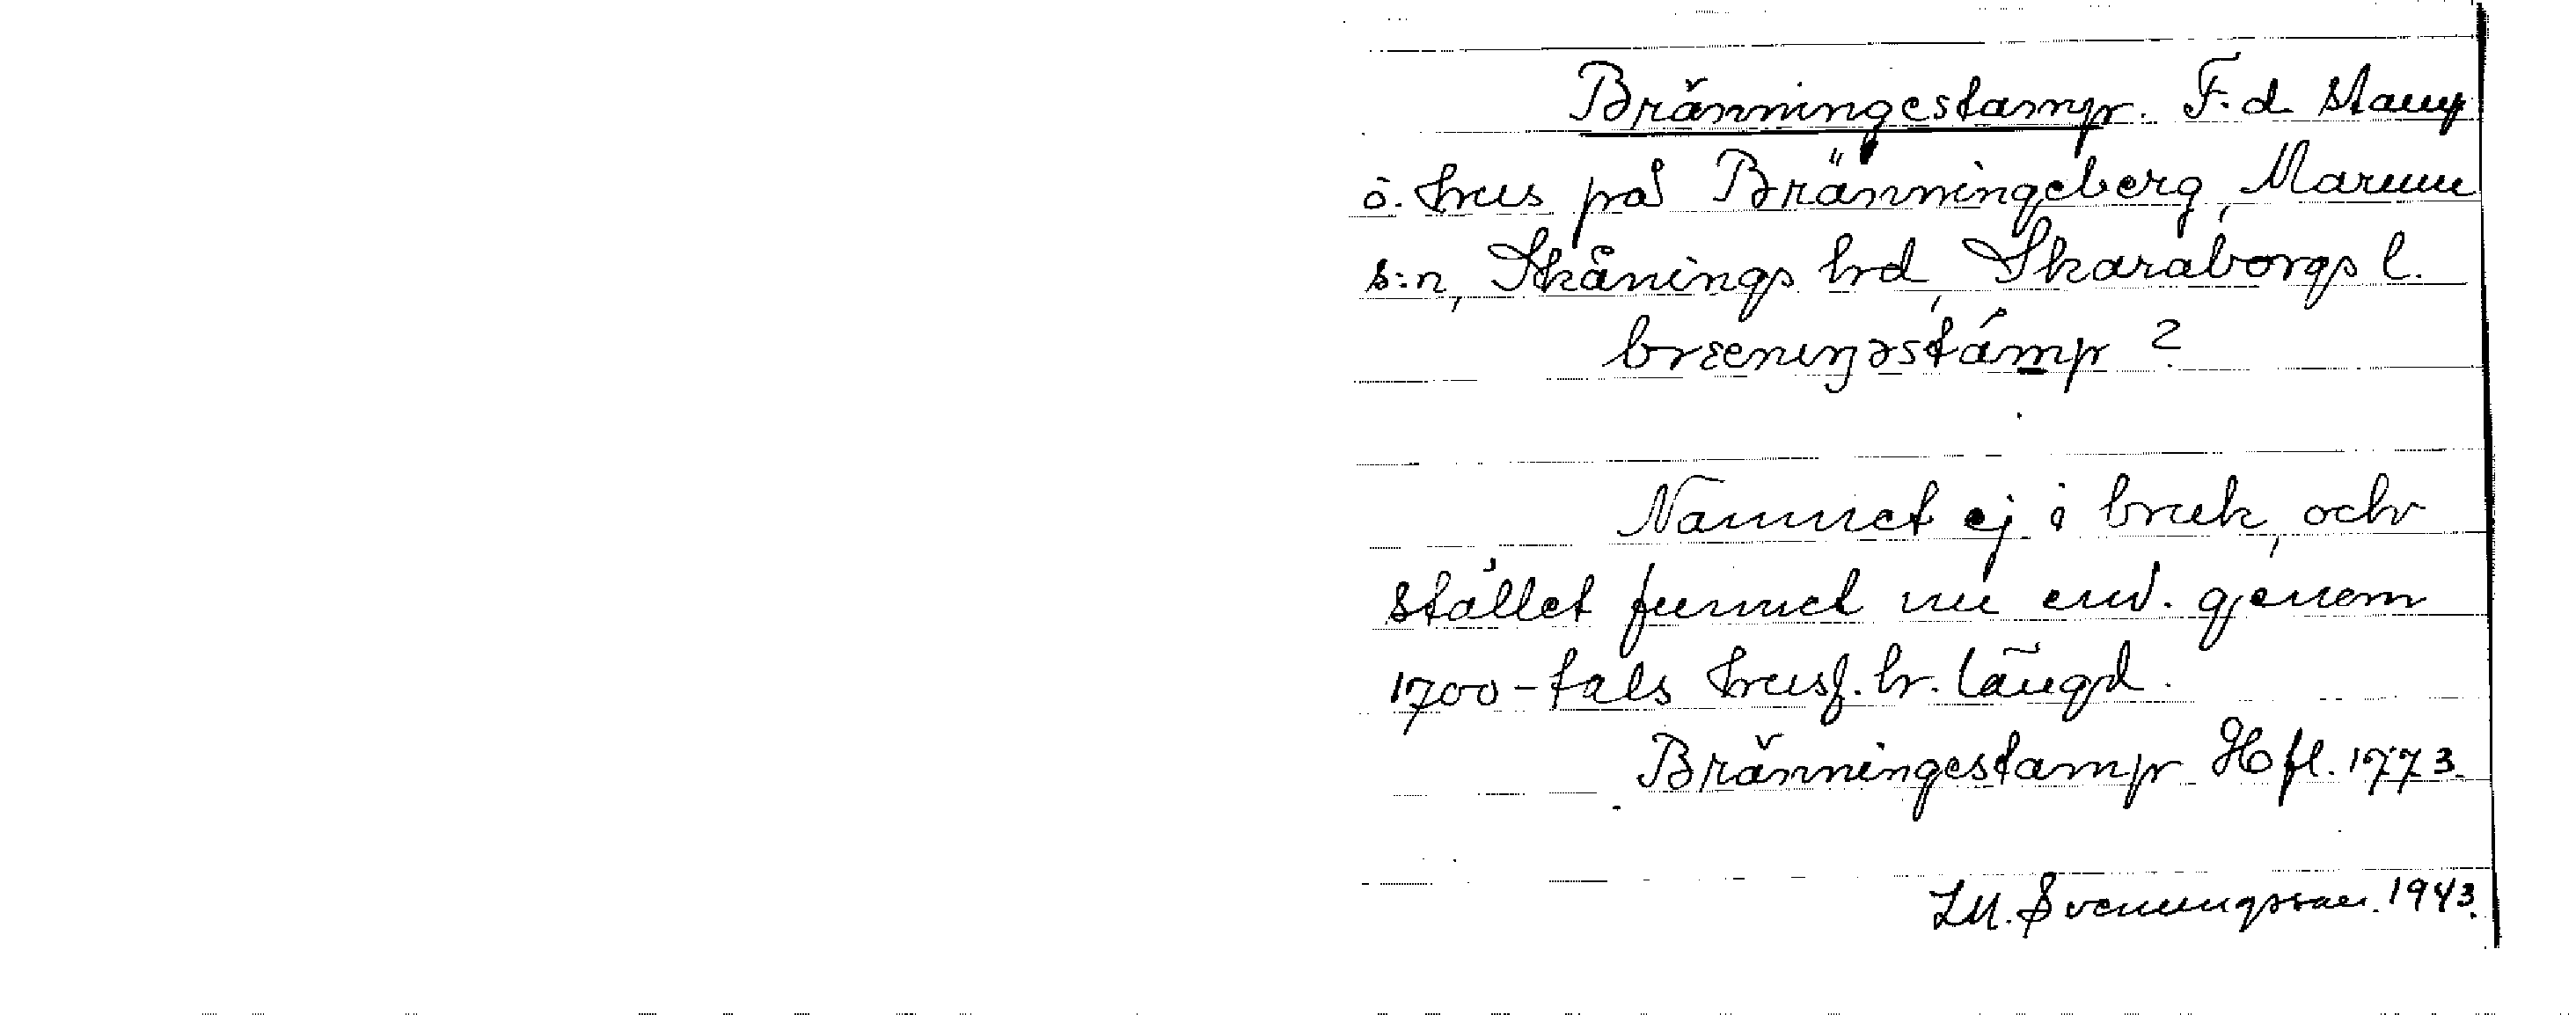 Bränningestamp. F. d. stamp
o. hus på Bränningeberg, Marum
s:n, Skånings hd, Skaraborgs l.
bræniŋəstámp ?
Namnet ej i bruk, och
stället funnet nu end. gjenom
1700-tals husf. br. längd.
Bränningestamp Hfl. 1773.
Svenungsson. 1943.